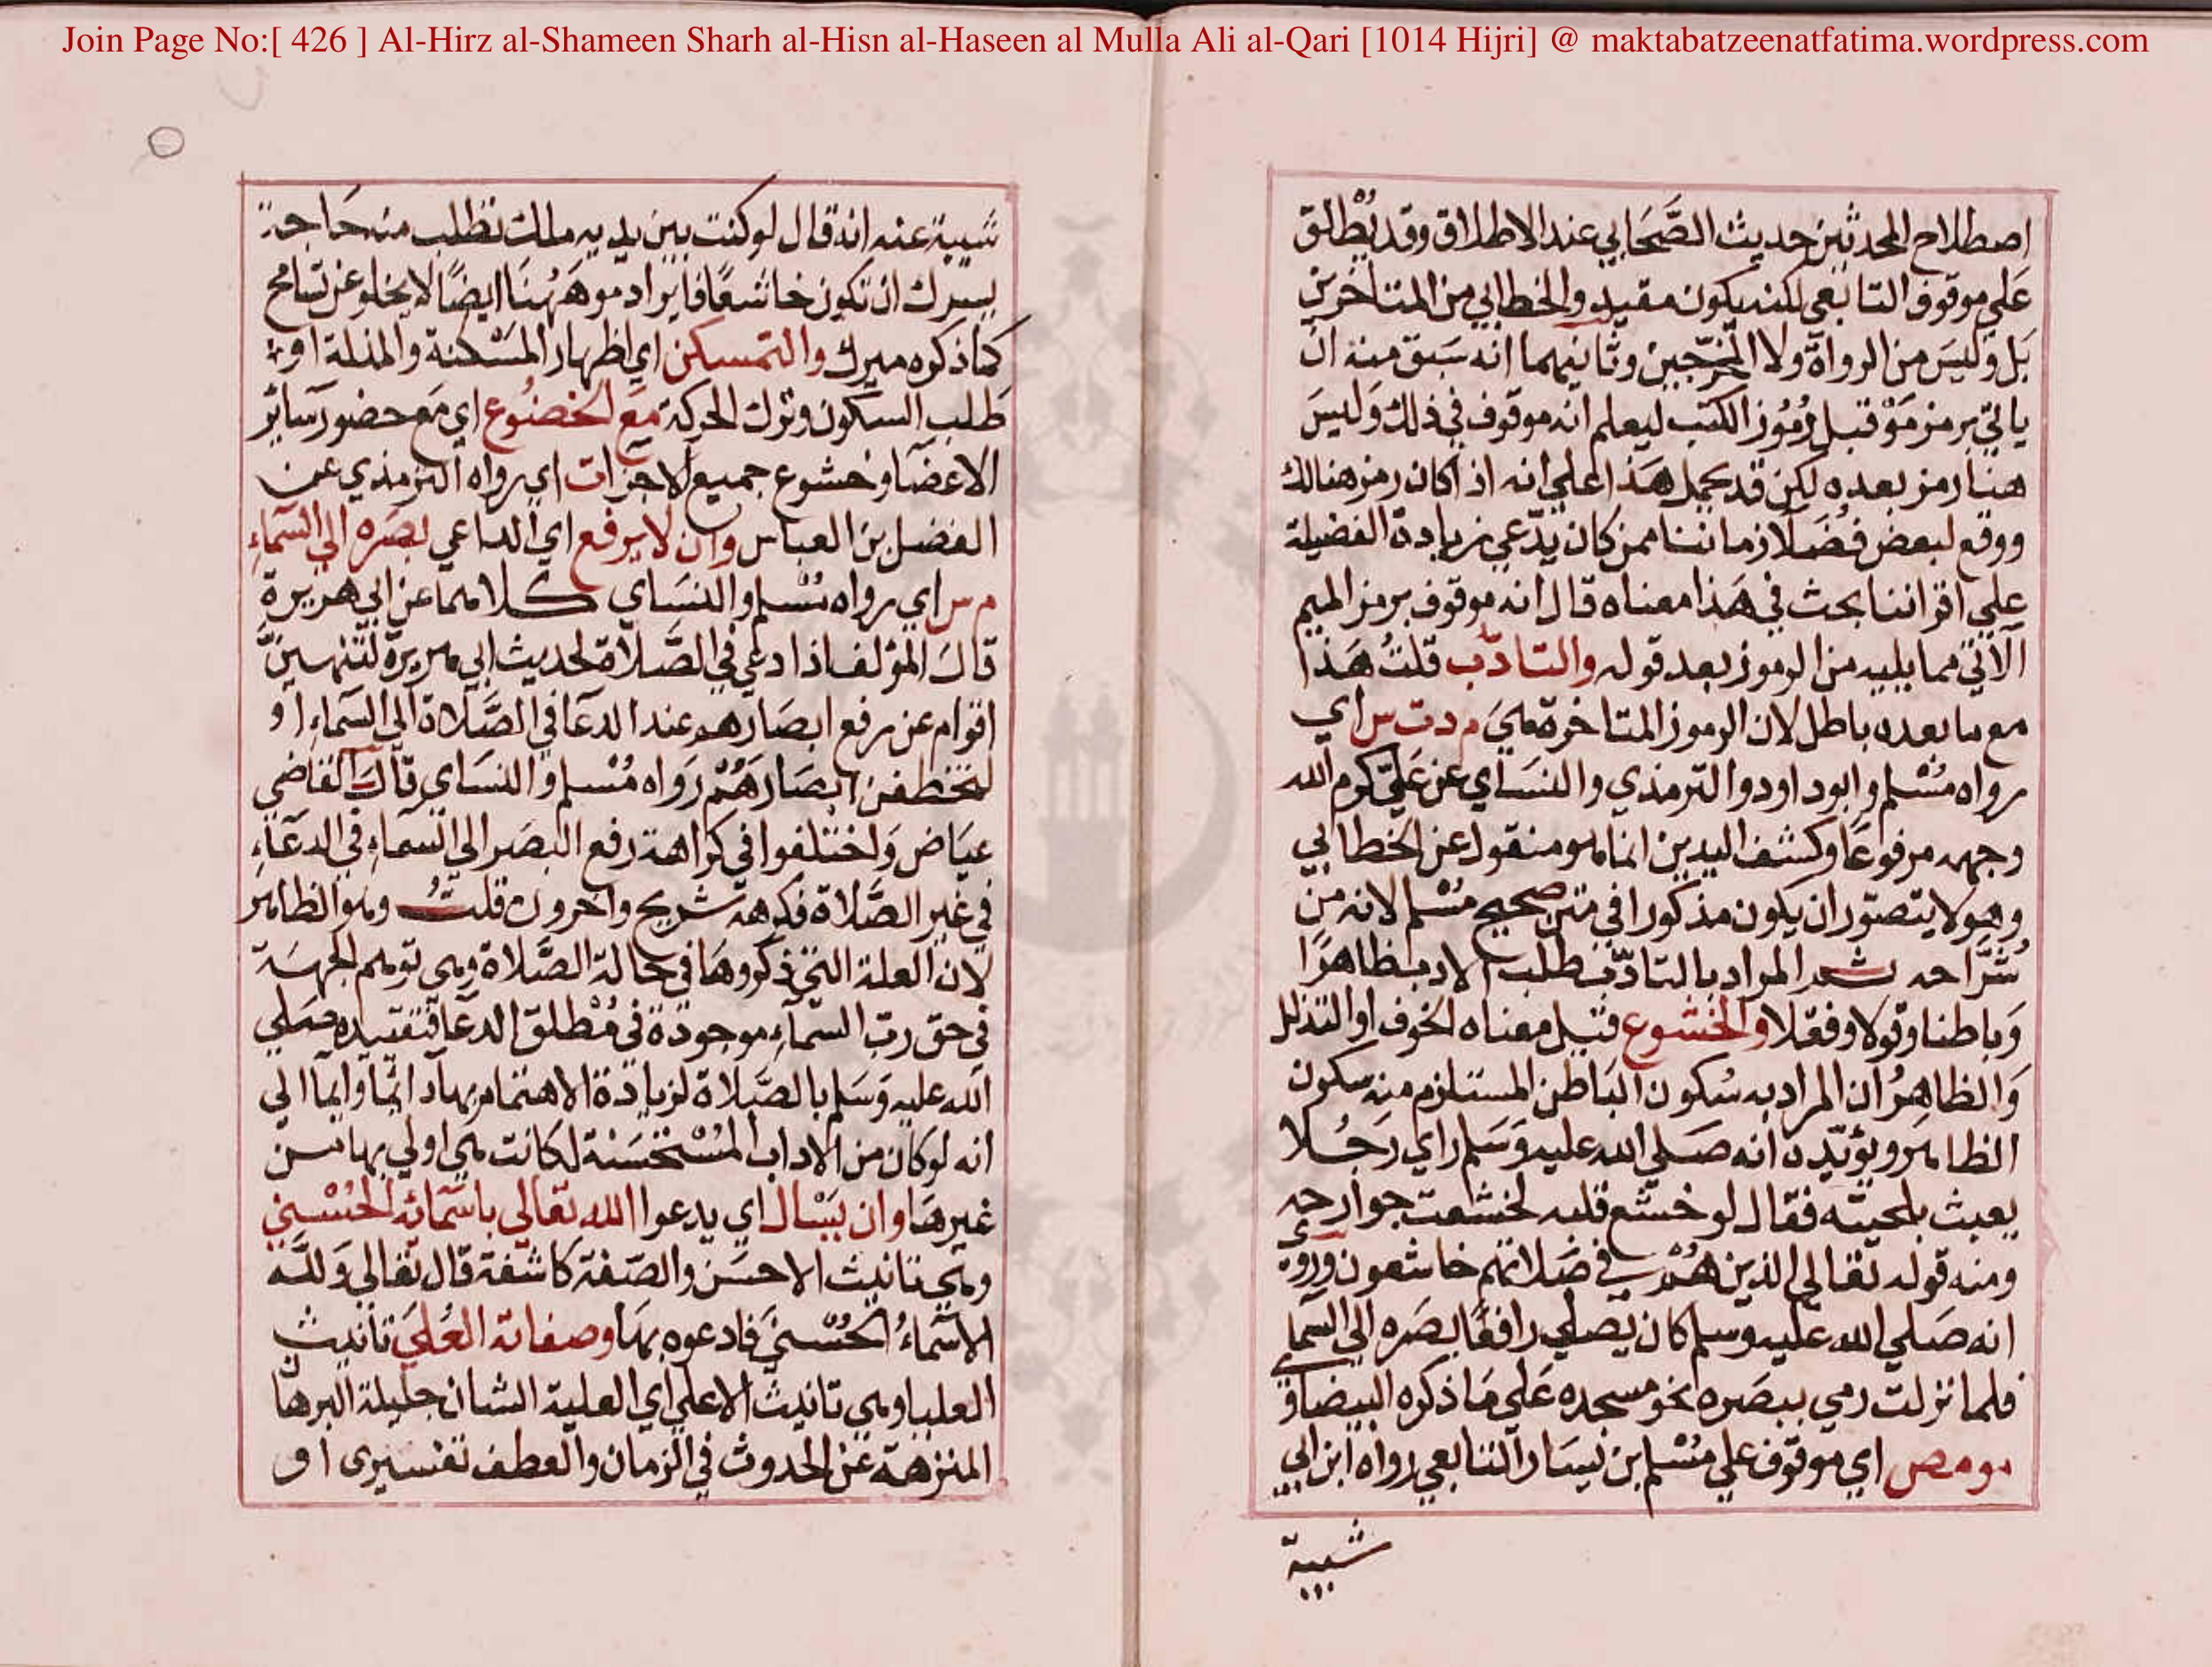 Join Page No:[ 426 ] Al-Hirz al-Shameen Sharh al-Hisn al-Haseen al Mulla Ali al-Qari [1014 Hijri] @ maktabatzeenatfatima.wordpress.com
اصطلاح المحدثين حديث الصَّحَابي عند الاطلاق وقد يُطْلق
عَلي موقوف التابعي لكنه يكون مقيد والخطابي من المتاخرين
بَل وَليسَ من الرواة ولا المخرّجين وثانيهما انه سَبق منه ان
ياتي برمز مَوْ قبل رُمُوز الكتب ليعلم انه موقوف في ذلك وَليسَ
هنا رمز بعده لكن قد يحمل هَذا علي انه اذا كان رمز هنالك
ووقع لبعض فُضَلا زماننا ممن كان يدّعي زيادة الفضيلة
علي اقراننا بحث في هَذا معناه قال انه موقوف برمز الميم
الآتي مما يليه من الرموز بعد قوله والتادّب قلتُ هَذا
مع ما بعده باطل لان الرموز المتاخرة هيَ م د ت س اي
رواه مُسْلم وابوداود والترمذي والنسَاي عن عَليّ كرم الله
وجهه مرفوعًا وكشف اليدين انما هو منقول عن الخطابي
وهو لا يتصوّر ان يكون مذكورا في متن صحيح مُسْلم لانه من
شُرَّاحه ثم المراد بالتادّب طلب الادب ظاهرًا
وَباطنا وقولا وفعَلا والخشوع قيل معناه الخوف او التذلل
وَالظاهرُ ان المراد به سُكون البَاطن المستلزم منه سكون
الظاهر ويؤيّده انه صَلي الله عليه وَسَلم راي رَجُلا
يعبث بلحيته فقال لو خشع قلبه لخشعت جوارحه
ومنه قوله تعَالي الذين هُمْ في صَلاتهم خاشعون وروي
انه صَلي الله عليه وسلم كان يصَلي رافعًا بصَره الي السما
فلما نزلت رمي ببصَره نحو مسجده عَلي مَا ذكره البيضاوي
مو مص اي موقوف علي مُسْلم بن يَسَار التابعي رواه ابن ابي
شيبة
شيبة عنه انه قال لو كنت بين يديه ملك تطلب منه حَاجة
يسرك ان تكون خاشعًا فايراد مو هَهُنَا ايضًا لا يخلو عن تسامح
كمَا ذكره ميرك والتمسكن اي اظهار المَسْكنة والمذلة او
طَلب السكون وترك الحركة مَع الخضُوع اي مَع حضور سَائر
الاعضا وخشوع جميع الاجزا ت اي رواه الترمذي عن
الفضل بن العباس وان لا يرفع اي الداعي بصَره الي السّماءِ
م س اي رواه مُسْلم والنسَاي كلاهما عن ابي هريرة
قالَ المؤلف اذا دعي في الصَّلاة لحديث ابي هريرة لينتهينَّ
اقوام عن رفع ابصَارهم عند الدعَا في الصَّلاة الي السّماءِ او
لتخطفن ابصَارهُمْ رَوَاه مُسْلم والنسَاي قالَ القاضي
عيَاض وَاختلفوا في كرَاهة رفع البصَر الي السّماءِ في الدعَاءِ
في غير الصَّلاة فكرهه شريح واخرون قلتُ وهو الظاهر
لان العلة التي ذكروهَا في حَالة الصَّلاة وهي توهم الجهَة
في حق ربّ السّماءِ موجودَة في مُطْلق الدعَا فتقييده صَلي
الله عليه وَسَلم بالصَّلاة لزيادَة الاهتمام بهَا دائما وايما الي
انه لو كان من الاداب المُسْتحسَنة لكانت هي اولي بها من
غيرهَا وان يَسْال اي يدعوا الله تعَالي باسْمائه الحُسْني
وهي تانيث الاحسَن والصّفة كاشفة قال تعَالي وَللّه
الاسْماءُ الحُسْنيَ فادعوه بهَا وصفاته العُليَ تانيث
العليا وهي تانيث الاعلي اي العلية الشان جليلة البرهان
المنزهَة عَن الحدوث في الزمان والعطف تفسيري او